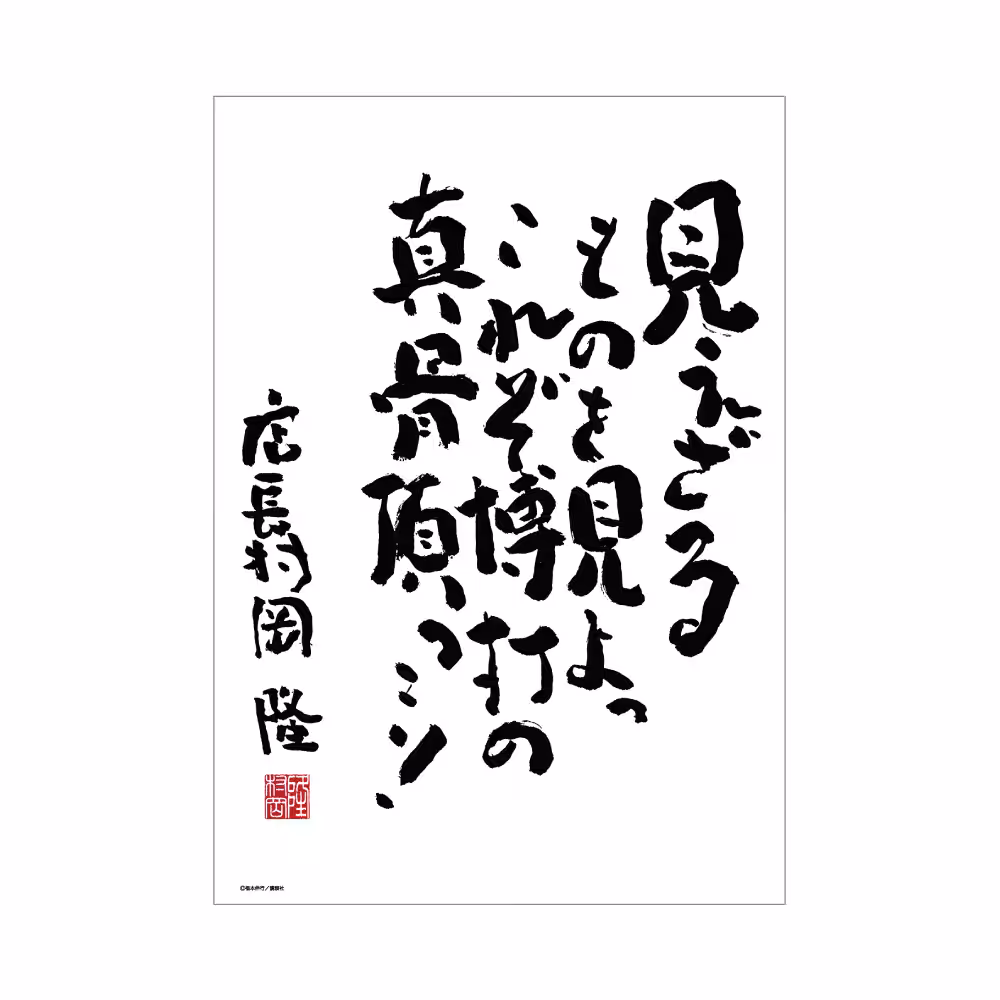 見えざる
ものを見よっ
これぞ博打の
真骨頂っ…!
店長村岡 隆
村岡隆
©福本伸行／講談社